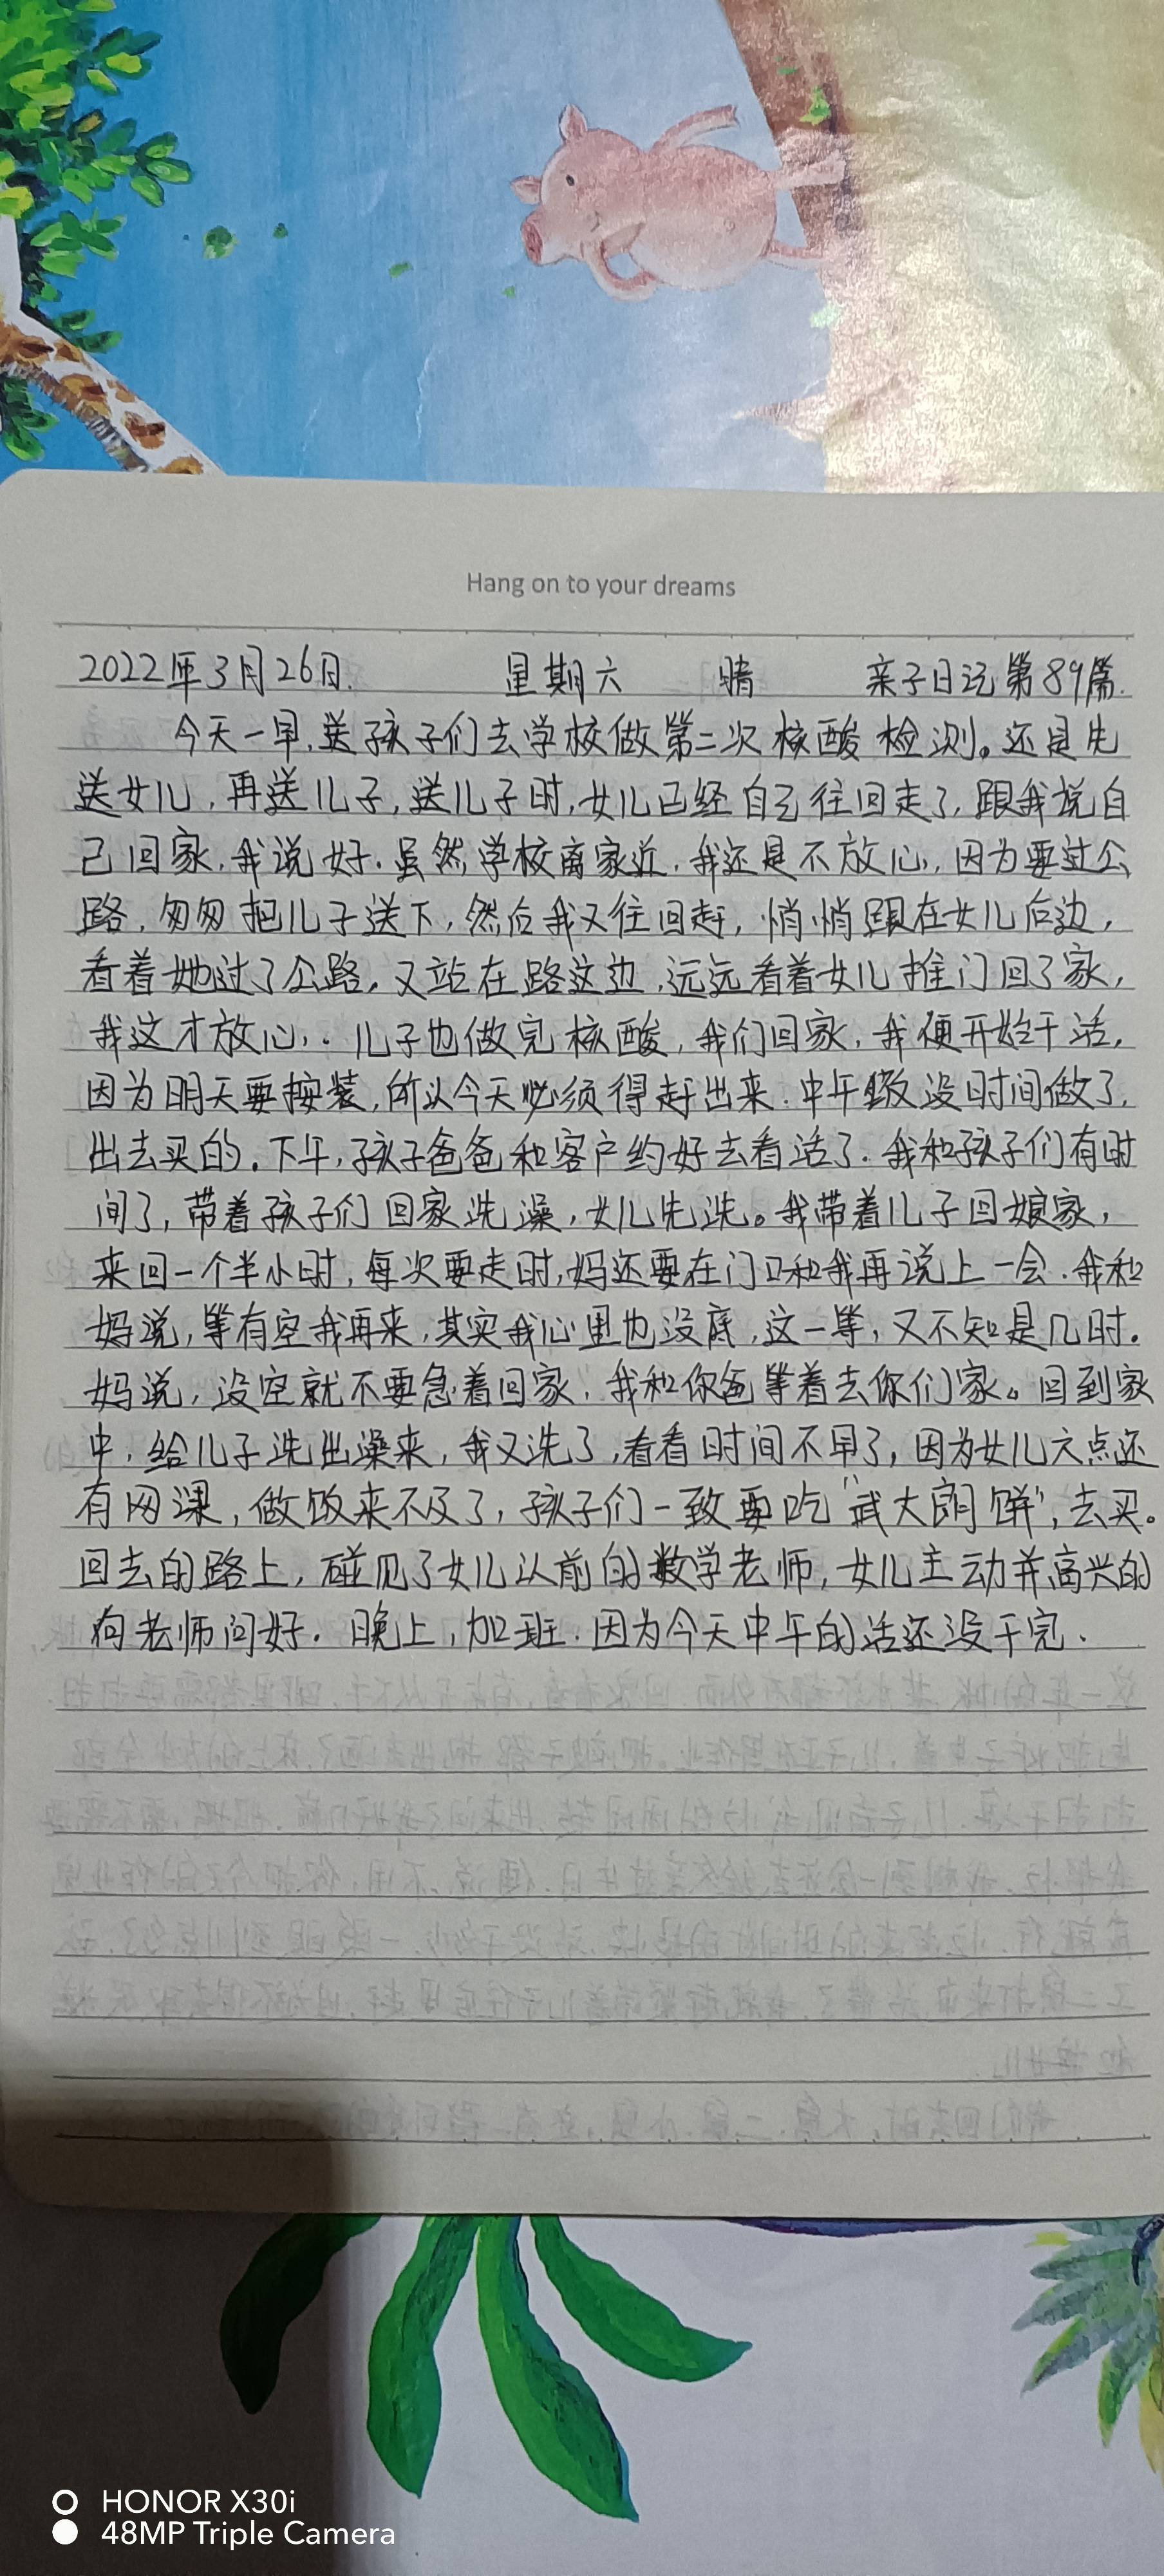 Hang on to your dreams
2022年3月26日. 星期六 晴 亲子日记第89篇.
今天一早,送孩子们去学校做第二次核酸检测。还是先
送女儿,再送儿子,送儿子时,女儿已经自己往回走了,跟我说自
己回家,我说好.虽然学校离家近,我还是不放心,因为要过公
路,匆匆把儿子送下,然后我又往回赶,悄悄跟在女儿后边,
看着她过了公路,又站在路这边,远远看着女儿推门回了家,
我这才放心,.儿子也做完核酸,我们回家,我便开始干活,
因为明天要按装,所以今天必须得赶出来.中午饭没时间做了,
出去买的.下午,孩子爸爸和客户约好去看活了.我和孩子们有时
间了,带着孩子们回家洗澡,女儿先洗。我带着儿子回娘家,
来回一个半小时,每次要走时,妈还要在门口和我再说上一会.我和
妈说,等有空我再来,其实我心里也没底,这一等,又不知是几时.
妈说,没空就不要急着回家,我和你爸等着去你们家。回到家
中,给儿子洗出澡来,我又洗了,看看时间不早了,因为女儿六点还
有网课,做饭来不及了,孩子们一致要吃"武大郎饼",去买。
回去的路上,碰见了女儿以前的数学老师,女儿主动并高兴的
向老师问好.晚上,加班.因为今天中午的活还没干完.
HONOR X30i
48MP Triple Camera